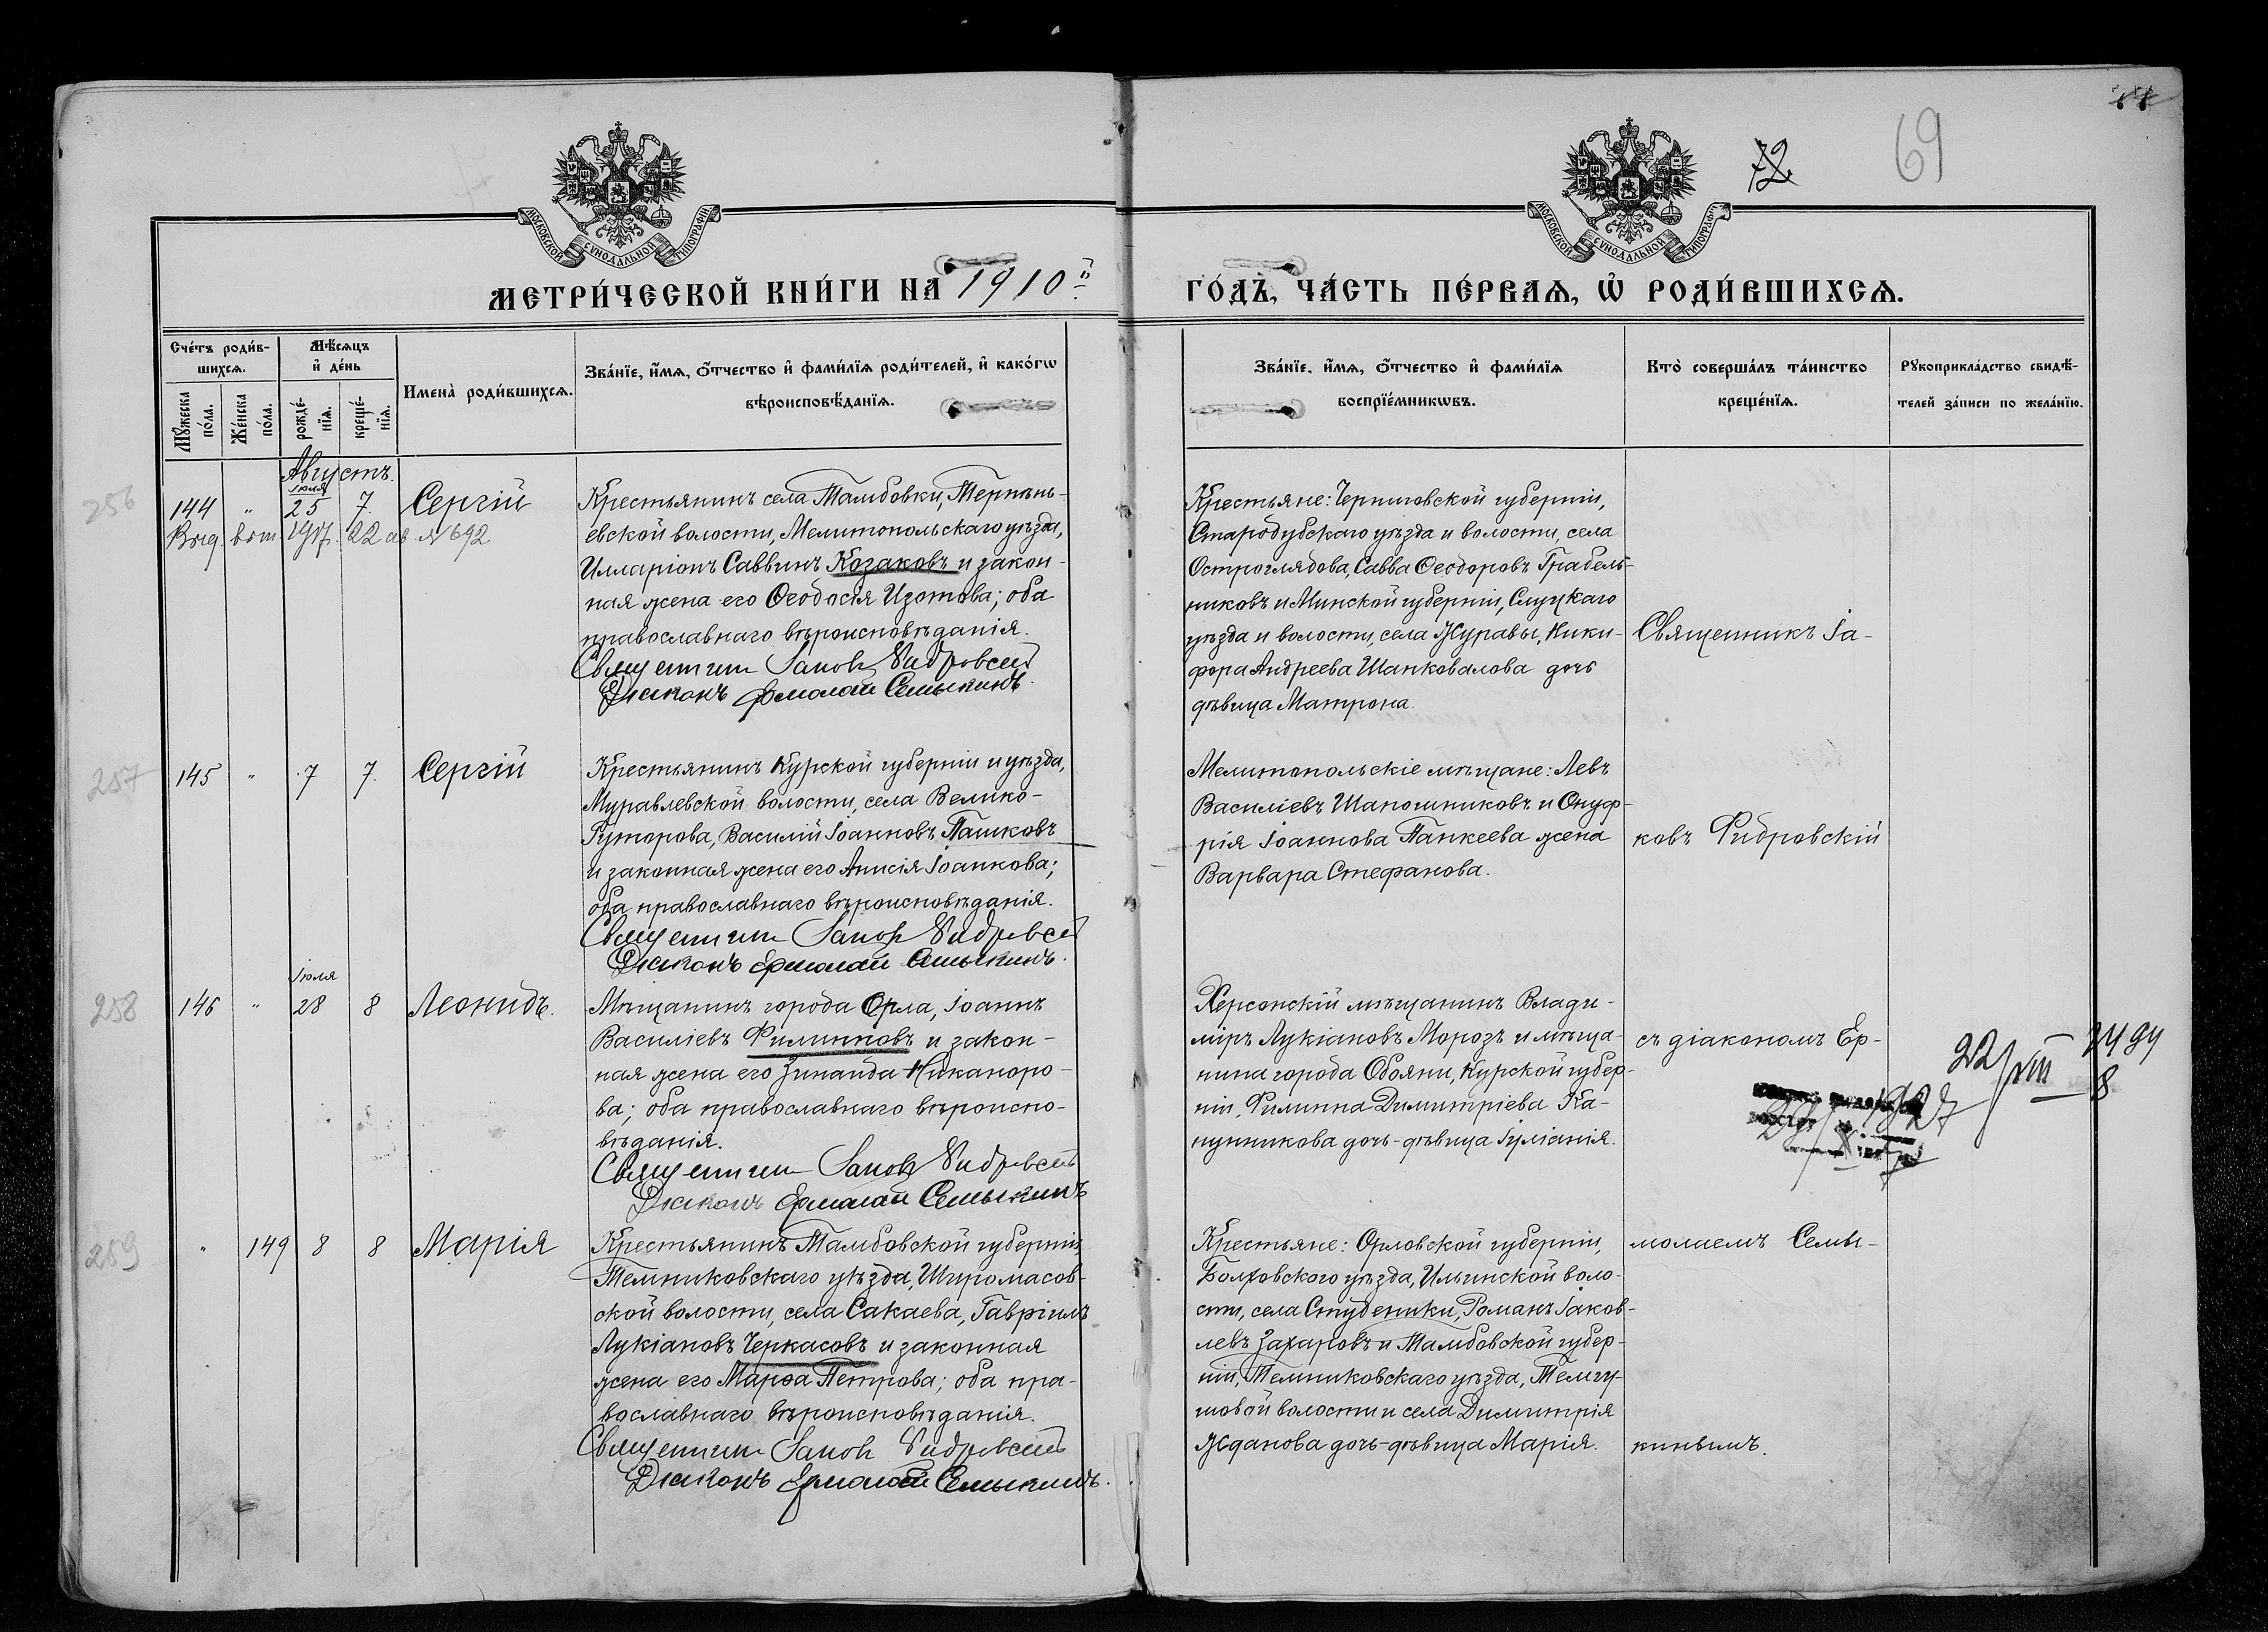 72
69
МОСКОВСКОЙ СѴНОДАЛЬНОЙ ТИПОГРАФІИ
МОСКОВСКОЙ СѴНОДАЛЬНОЙ ТИПОГРАФІИ
МЕТРИ́ЧЕСКОЙ КНИ́ГИ НА 1910й
ГО́ДЪ, ЧА́СТЬ ПЕ́РВАѦ, Ѡ҆ РОДИ́ВШИХСѦ.
Сче́тъ роди́в-
шихсѧ.
Мꙋ́жеска по́ла.
Же́нска по́ла.
Мѣ́сѧцъ
и҆ де́нь
рожде́-
нїѧ.
креще́-
нїѧ.
Имена̀ роди́вшихсѧ.
Зва́нїе, и҆́мѧ, ѻ҆́тчество и҆ фами́лїѧ роди́телей, и҆ како́гѡ
вѣроисповѣ́данїѧ.
Зва́нїе, и҆́мѧ, ѻ҆́тчество и҆ фами́лїѧ
воспрїе́мникѡвъ.
Кто̀ соверша́лъ та́инство
креще́нїѧ.
Рꙋкоприкла́дство свидѣ́-
телей за́писи по жела́нїю.
Августъ.
256
144 " Іюля 25 7. Сергій
22 ав № 692
Крестьянинъ села Тамбовки, Терпѣнь-
евской волости, Мелитопольскаго уѣзда,
Илларіонъ Саввинъ Козаковъ и закон-
ная жена его Ѳеодосія Изотова; оба
православнаго вѣроисповѣданія.
Священникъ Іаковъ Фидровскій
Діаконъ Ермолай Семыкинъ.
Крестьяне: Черниговской губерніи,
Стародубскаго уѣзда и волости, села
Остроглядова, Савва Ѳеодоровъ Грабель-
никовъ и Минской губерніи, Слуцкаго
уѣзда и волости, села Журавы, Ники-
фора Андреева Шаповалова дочь
дѣвица Матрона.
Священникъ Іа-
257
145 " 7 7. Сергій
Крестьянинъ Курской губерніи и уѣзда,
Муравлевской волости, села Велико-
Гуторова, Василій Іоанновъ Пашковъ
и законная жена его Анисія Іоаннова;
оба православнаго вѣроисповѣданія.
Священникъ Іаковъ Фидровскій
Діаконъ Ермолай Семыкинъ.
Мелитопольскіе мѣщане: Левъ
Василіевъ Шапошниковъ и Онуф-
рія Іоаннова Панкеева жена
Варвара Стефанова.
ковъ Фидровскій
258
146 " Іюля 28 8 Леонидъ.
Мѣщанинъ города Орла, Іоаннъ
Василіевъ Филипповъ и закон-
ная жена его Зинаида Никаноро-
ва; оба православнаго вѣроиспо-
вѣданія.
Священникъ Іаковъ Фидровскій
Діаконъ Ермолай Семыкинъ
Херсонскій мѣщанинъ Влади-
міръ Лукіановъ Морозъ и мѣща-
нина города Обояни, Курской губер-
ніи, Филиппа Димитріева Ка-
нунникова дочь-дѣвица Іуліанія.
съ діакономъ Ер-
22/VIII
1927
259
" 149 8 8 Марія
Крестьянинъ Тамбовской губерніи,
Темниковскаго уѣзда, Широмасов-
ской волости, села Сакаева, Гавріилъ
Лукіановъ Черкасовъ и законная
жена его Марѳа Петрова; оба пра-
вославнаго вѣроисповѣданія.
Священникъ Іаковъ Фидровскій
Діаконъ Ермолай Семыкинъ.
Крестьяне: Орловской губерніи,
Болховскаго уѣзда, Ильинской воло-
сти, села Студеники, Романъ Іаков-
левъ Захаровъ и Тамбовской губер-
ніи, Темниковскаго уѣзда,
волости и села Димитрія
Жданова дочь-дѣвица Марія.
молаемъ Семы-
кинымъ.